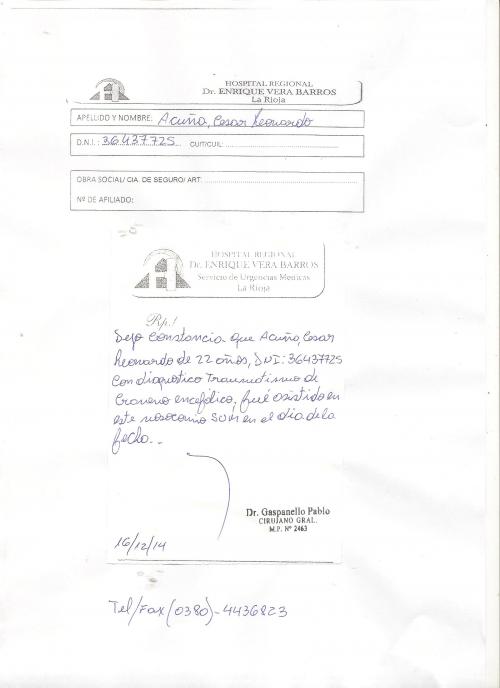 HOSPITAL REGIONAL
Dr. ENRIQUE VERA BARROS
La Rioja
APELLIDO Y NOMBRE: Acuña, Cesar Leonardo
D.N.I. : 36437725 CUIT/CUIL:
OBRA SOCIAL/ CIA. DE SEGURO/ ART:
Nº DE AFILIADO:
HOSPITAL REGIONAL
Dr. ENRIQUE VERA BARROS
Servicio de Urgencias Médicas
La Rioja
Rp.!
Dejo Constancia que Acuña, Cesar
Leonardo de 22 años, DNI: 36437725
Con diagnostico Traumatismo de
Craneno encefálico, fué asistido en
este nosocomio SUM en el día de la
fecha..
Dr. Gaspanello Pablo
CIRUJANO GRAL.
M.P. Nº 2463
16/12/14
Tel/Fax (0380)-4436823